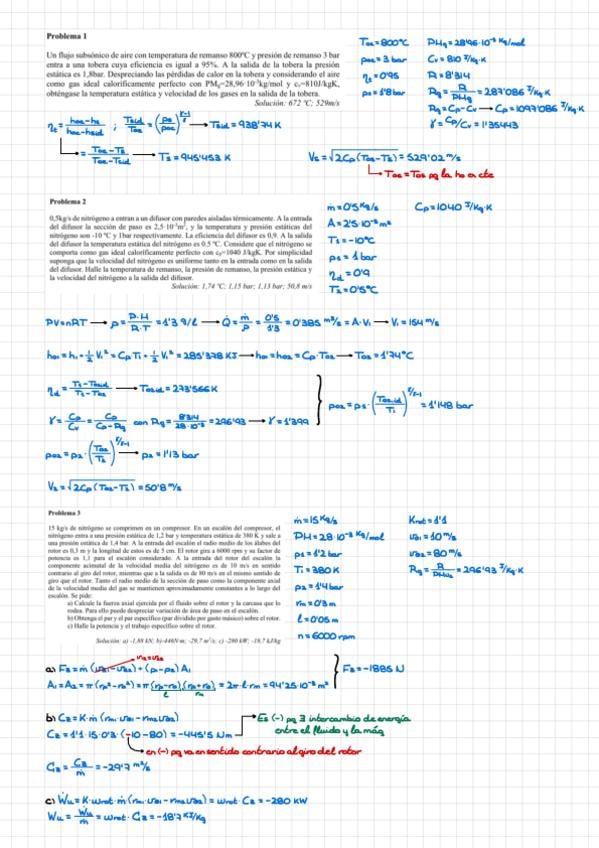 Problema 1
Un flujo subsónico de aire con temperatura de remanso 800ºC y presión de remanso 3 bar
entra a una tobera cuya eficiencia es igual a 95%. A la salida de la tobera la presión
estática es 1,8bar. Despreciando las pérdidas de calor en la tobera y considerando el aire
como gas ideal calorificamente perfecto con PMg=28,96·10⁻³kg/mol y cv=810J/kgK,
obténgase la temperatura estática y velocidad de los gases en la salida de la tobera.
Solución: 672 ºC; 529m/s
Toe = 800ºC
poe = 3 bar
ηt = 0'95
ps = 1'8 bar
PMg = 28'96·10⁻³ Kg/mol
Cv = 810 J/Kg·K
R = 8'314
Rg = R/PMg = 287'086 J/Kg·K
Rg = Cp - Cv → Cp = 1097'086 J/Kg·K
γ = Cp/Cv = 1'35443
ηt = (hoe-hs)/(hoe-hsid) ; Tsid/Toe = (ps/poe)^((γ-1)/γ) → Tsid = 938'74 K
= (Toe-Ts)/(Toe-Tsid) → Ts = 945'453 K
Vs = √(2Cp(Tos-Ts)) = 529'02 m/s
Toe = Tos pq la ho es cte
Problema 2
0,5kg/s de nitrógeno a entran a un difusor con paredes aisladas térmicamente. A la entrada
del difusor la sección de paso es 2,5·10⁻³m², y la temperatura y presión estáticas del
nitrógeno son -10 ºC y 1bar respectivamente. La eficiencia del difusor es 0,9. A la salida
del difusor la temperatura estática del nitrógeno es 0.5 ºC. Considere que el nitrógeno se
comporta como gas ideal calorificamente perfecto con cp=1040 J/kgK. Por simplicidad
suponga que la velocidad del nitrógeno es uniforme tanto en la entrada como en la salida
del difusor. Halle la temperatura de remanso, la presión de remanso, la presión estática y
la velocidad del nitrógeno a la salida del difusor.
Solución: 1,74 ºC; 1,15 bar; 1,13 bar; 50,8 m/s
ṁ = 0'5 Kg/s
A = 2'5·10⁻³ m²
T1 = -10ºC
p1 = 1 bar
ηd = 0'9
T2 = 0'5ºC
Cp = 1040 J/Kg·K
PV = nRT → ρ = P·M/R·T = 1'3 g/l → Q̇ = ṁ/ρ = 0'5/1'3 = 0'385 m³/s = A·V1 → V1 = 154 m/s
ho1 = h1 + ½ V1² = Cp T1 + ½ V1² = 285'378 KJ → ho1 = ho2 = Cp·To2 → To2 = 1'74ºC
→ To2id = 273'566 K
γ = Cp/Cv = Cp/(Cp-Rg) con Rg = 8'314/28·10⁻³ = 296'93 → γ = 1'399
po2 = p2·(To2/T2)^(γ/(γ-1)) → p2 = 1'13 bar
= 1'148 bar
V2 = √(2Cp(To2-T2)) = 50'8 m/s
Problema 3
15 kg/s de nitrógeno se comprimen en un compresor. En un escalón del compresor, el
nitrógeno entra a una presión estática de 1,2 bar y temperatura estática de 380 K y sale a
una presión estática de 1,4 bar. A la entrada del escalón el radio medio de los álabes del
rotor es 0,3 m y la longitud de estos es de 5 cm. El rotor gira a 6000 rpm y su factor de
potencia es 1,1 para el escalón considerado. A la entrada del rotor del escalón la
componente acimutal de la velocidad media del nitrógeno es de 10 m/s en sentido
contrario al giro del rotor, mientras que a la salida es de 80 m/s en el mismo sentido de
giro que el rotor. Tanto el radio medio de la sección de paso como la componente axial
de la velocidad media del gas se mantienen aproximadamente constantes a lo largo del
escalón. Se pide:
a) Calcule la fuerza axial ejercida por el fluido sobre el rotor y la carcasa que lo
rodea. Para ello puede despreciar variación de área de paso en el escalón.
b) Obtenga el par y el par específico (par dividido por gasto másico) sobre el rotor.
c) Halle la potencia y el trabajo específico sobre el rotor.
Solución: a) -1,88 kN; b)-446N·m; -29,7 m²/s; c) -280 kW; -18,7 kJ/kg
ṁ = 15 Kg/s
PM = 28·10⁻³ Kg/mol
p1 = 1'2 bar
T1 = 380 K
p2 = 1'4 bar
rm = 0'3 m
l = 0'05 m
n = 6000 rpm
Krot = 1'1
vθ1 = 10 m/s
vθ2 = 80 m/s
Rg = R/PMN2 = 296'93 J/Kg·K
a) Fz = ṁ(vz1-vz2) + (p1-p2) A1
vz1=vz2
A1 = A2 = π(rp²-ro²) = π(rp-ro)(rp+ro) = 2π·l·rm = 94'25·10⁻³ m²
l
rm
Fz = -1885 N
b) Cz = K·ṁ(rm1·vθ1 - rm2 vθ2)
Cz = 1'1·15·0'3·(-10-80) = -445'5 Nm
Es (-) pq ∃ intercambio de energía
entre el fluido y la máq
en (-) pq va en sentido contrario al giro del rotor
Gz = Cz/ṁ = -29'7 m²/s
c) Ẇu = K·ωrot·ṁ(rm1·vθ1 - rm2 vθ2) = ωrot·Cz = -280 KW
Wu = Ẇu/ṁ = ωrot·Gz = -18'7 KJ/Kg